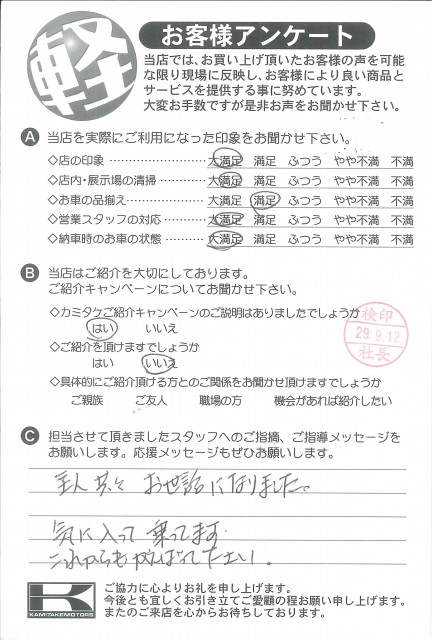 軽
お客様アンケート
当店では、お買い上げ頂いたお客様の声を可能
な限り現場に反映し、お客様により良い商品と
サービスを提供する事に努めています。
大変お手数ですが是非お声をお聞かせ下さい。
A 当店を実際にご利用になった印象をお聞かせ下さい。
◇店の印象 ‥‥‥‥‥‥‥ 大満足 満足 ふつう やや不満 不満
◇店内・展示場の清掃‥‥‥ 大満足 満足 ふつう やや不満 不満
◇お車の品揃え‥‥‥‥‥‥ 大満足 満足 ふつう やや不満 不満
◇営業スタッフの対応‥‥‥ 大満足 満足 ふつう やや不満 不満
◇納車時のお車の状態‥‥‥ 大満足 満足 ふつう やや不満 不満
B 当店はご紹介を大切にしております。
ご紹介キャンペーンについてお聞かせ下さい。
◇カミタケご紹介キャンペーンのご説明はありましたでしょうか
はい いいえ
検印
29.9.12
社長
◇ご紹介を頂けますでしょうか
はい いいえ
◇具体的にご紹介頂ける方とのご関係をお聞かせ頂けますでしょうか
ご親族 ご友人 職場の方 機会があれば紹介したい
C 担当させて頂きましたスタッフへのご指摘、ご指導メッセージを
お願いします。応援メッセージもぜひお願いします。
主人共々 お世話になりました。
気に入って 乗ってます。
これからもがんばって下さい。
K
KAMITAKEMOTORS
ご協力に心よりお礼を申し上げます。
今後とも宜しくお引き立てご愛顧の程お願い申し上げます。
またのご来店を心からお待ちしております。